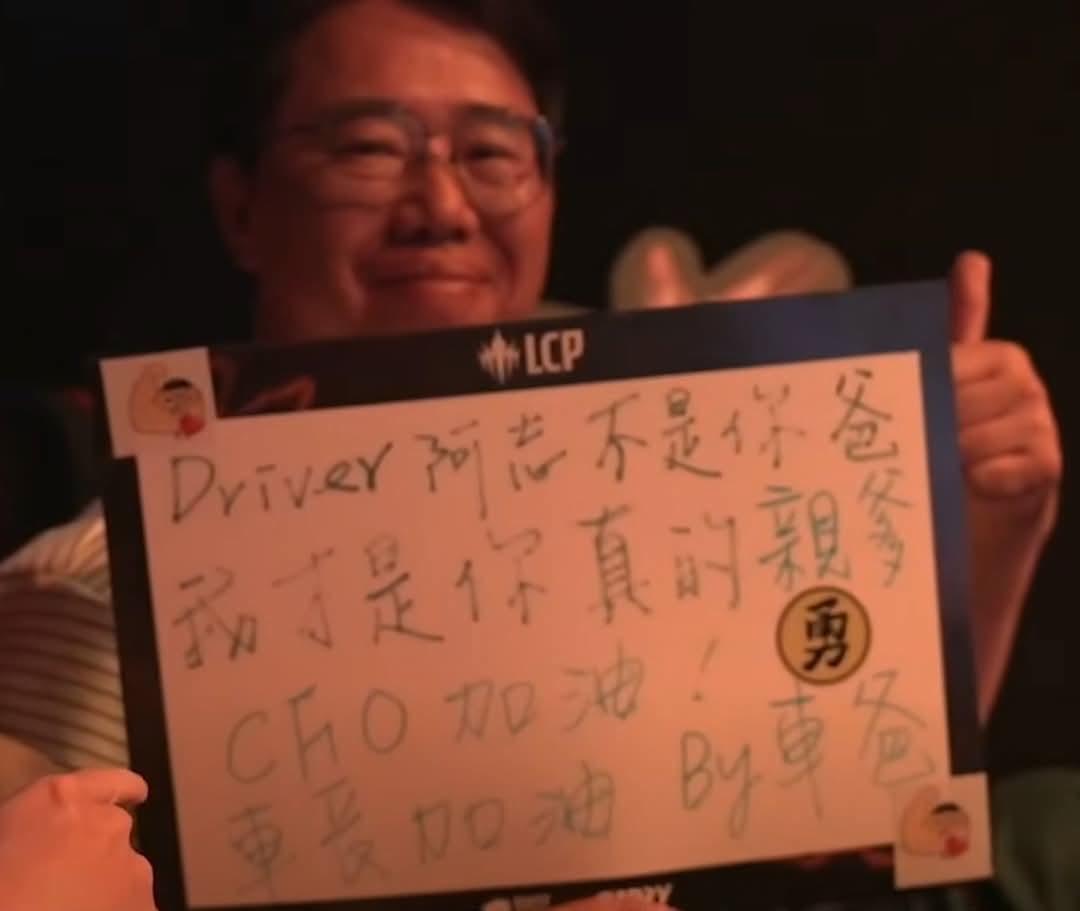 LCP
Driver 阿志不是你爸
我才是你真的親爹
勇
CFO 加油！
車長加油 By 車爸